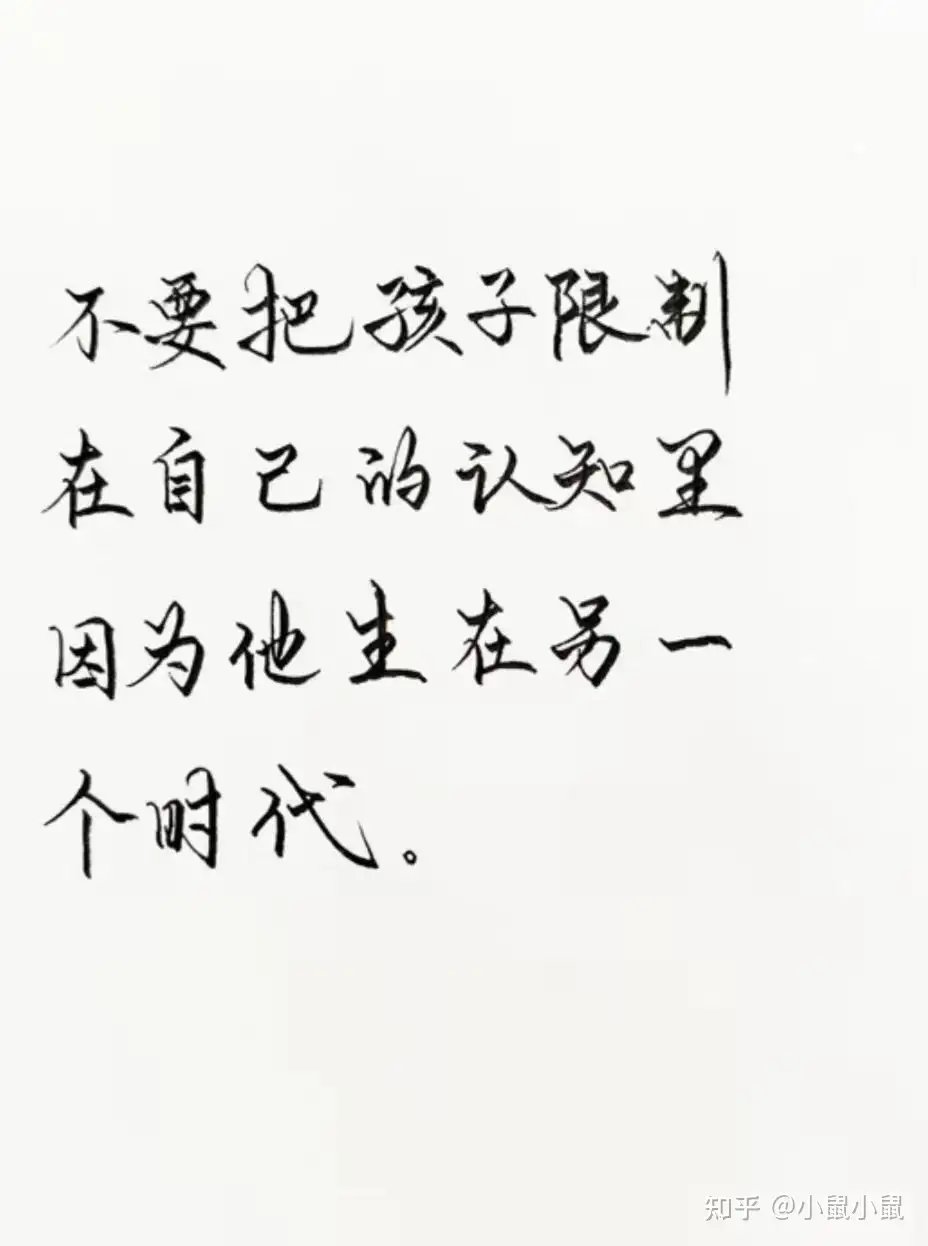 不要把孩子限制
在自己的认知里
因为他生在另一
个时代。
知乎 @小鼠小鼠